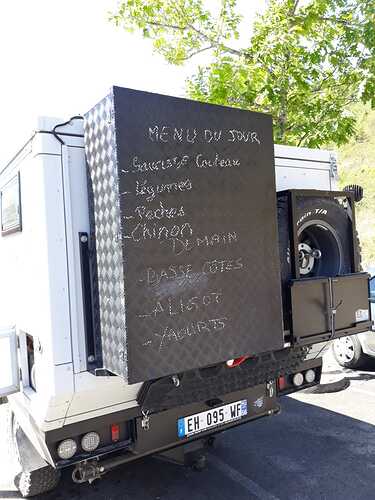 MENU DU JOUR
- Saucisse Couteau
- légumes
- Peches
- Chinon
DEMAIN
- BASSE CÔTES
- ALIGOT
- YAOURTS
T/A
EH-095-WF